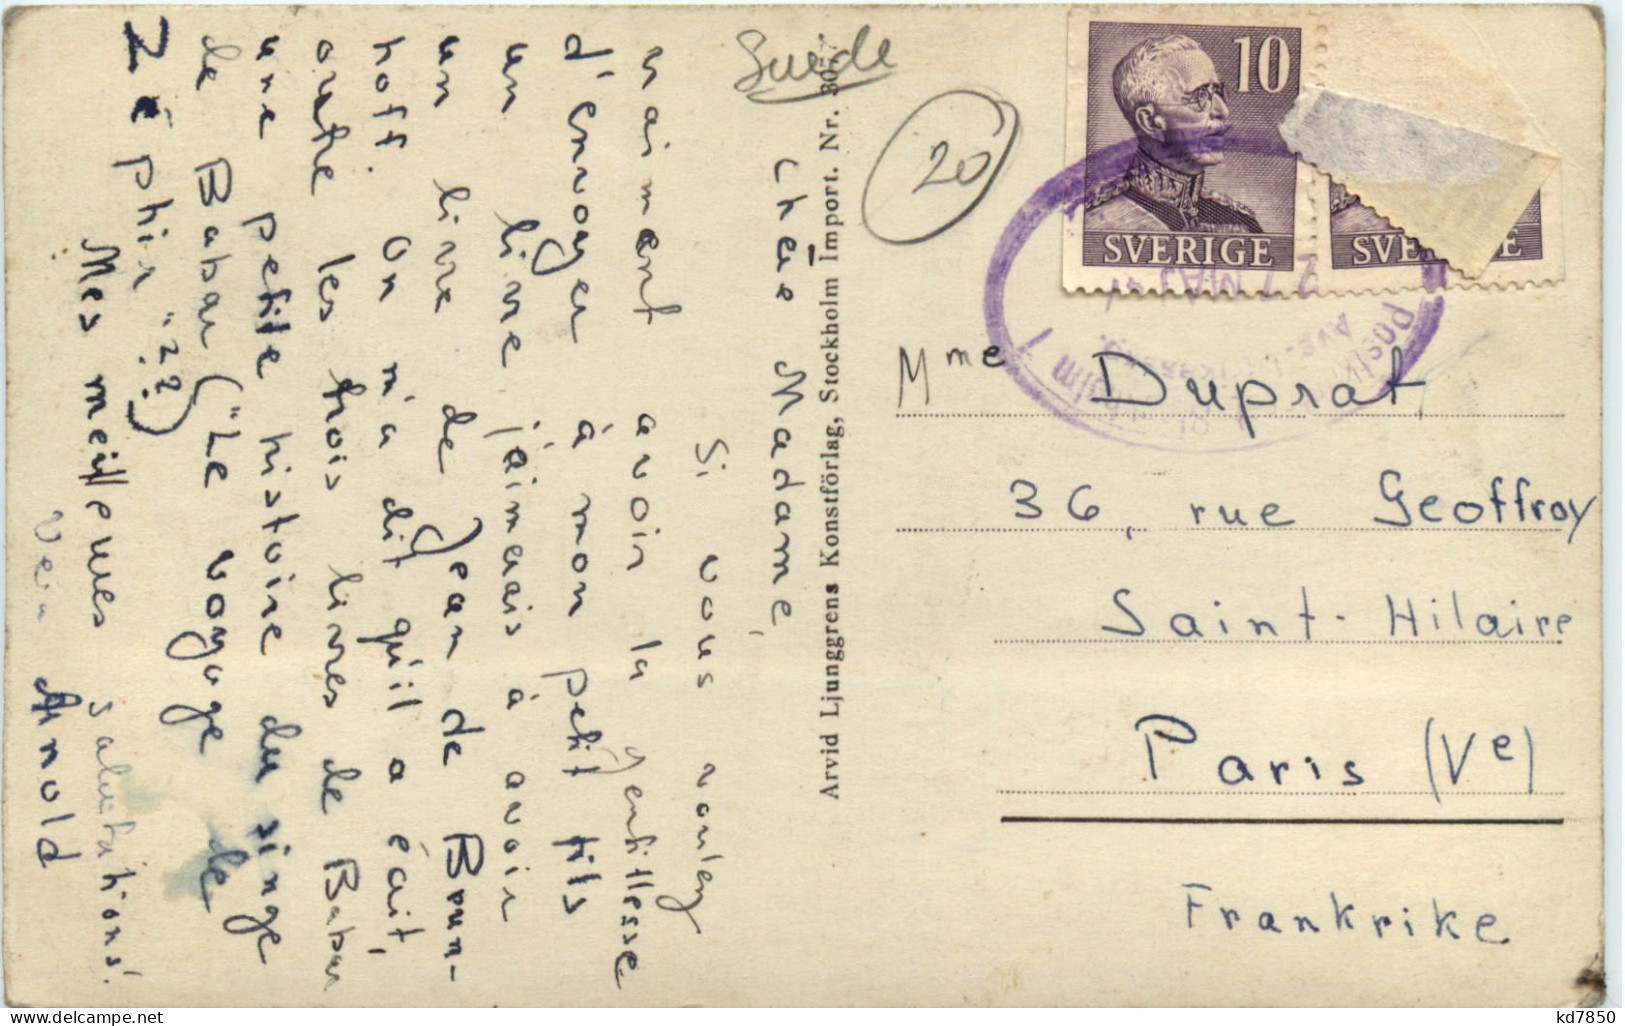 Suède
20
10
SVERIGE
SVE
E
27 MAJ
Chère Madame,
Si vous voulez
vraiment avoir la gentillesse
d'envoyer à mon petit fils
un livre j'aimerais à avoir
un livre de Jean de Brun-
hoff. On m'a dit qu'il a écrit,
outre les trois livres de Babar
une petite histoire du singe
de Babar ("Le voyage de
Zéphir"??)
Mes meilleures salutations!
Arnold
Arvid Ljunggrens Konstförlag, Stockholm Import. Nr.
Mme Duprat
36, rue Geoffroy
Saint-Hilaire
Paris (Ve)
Frankrike
kd7850